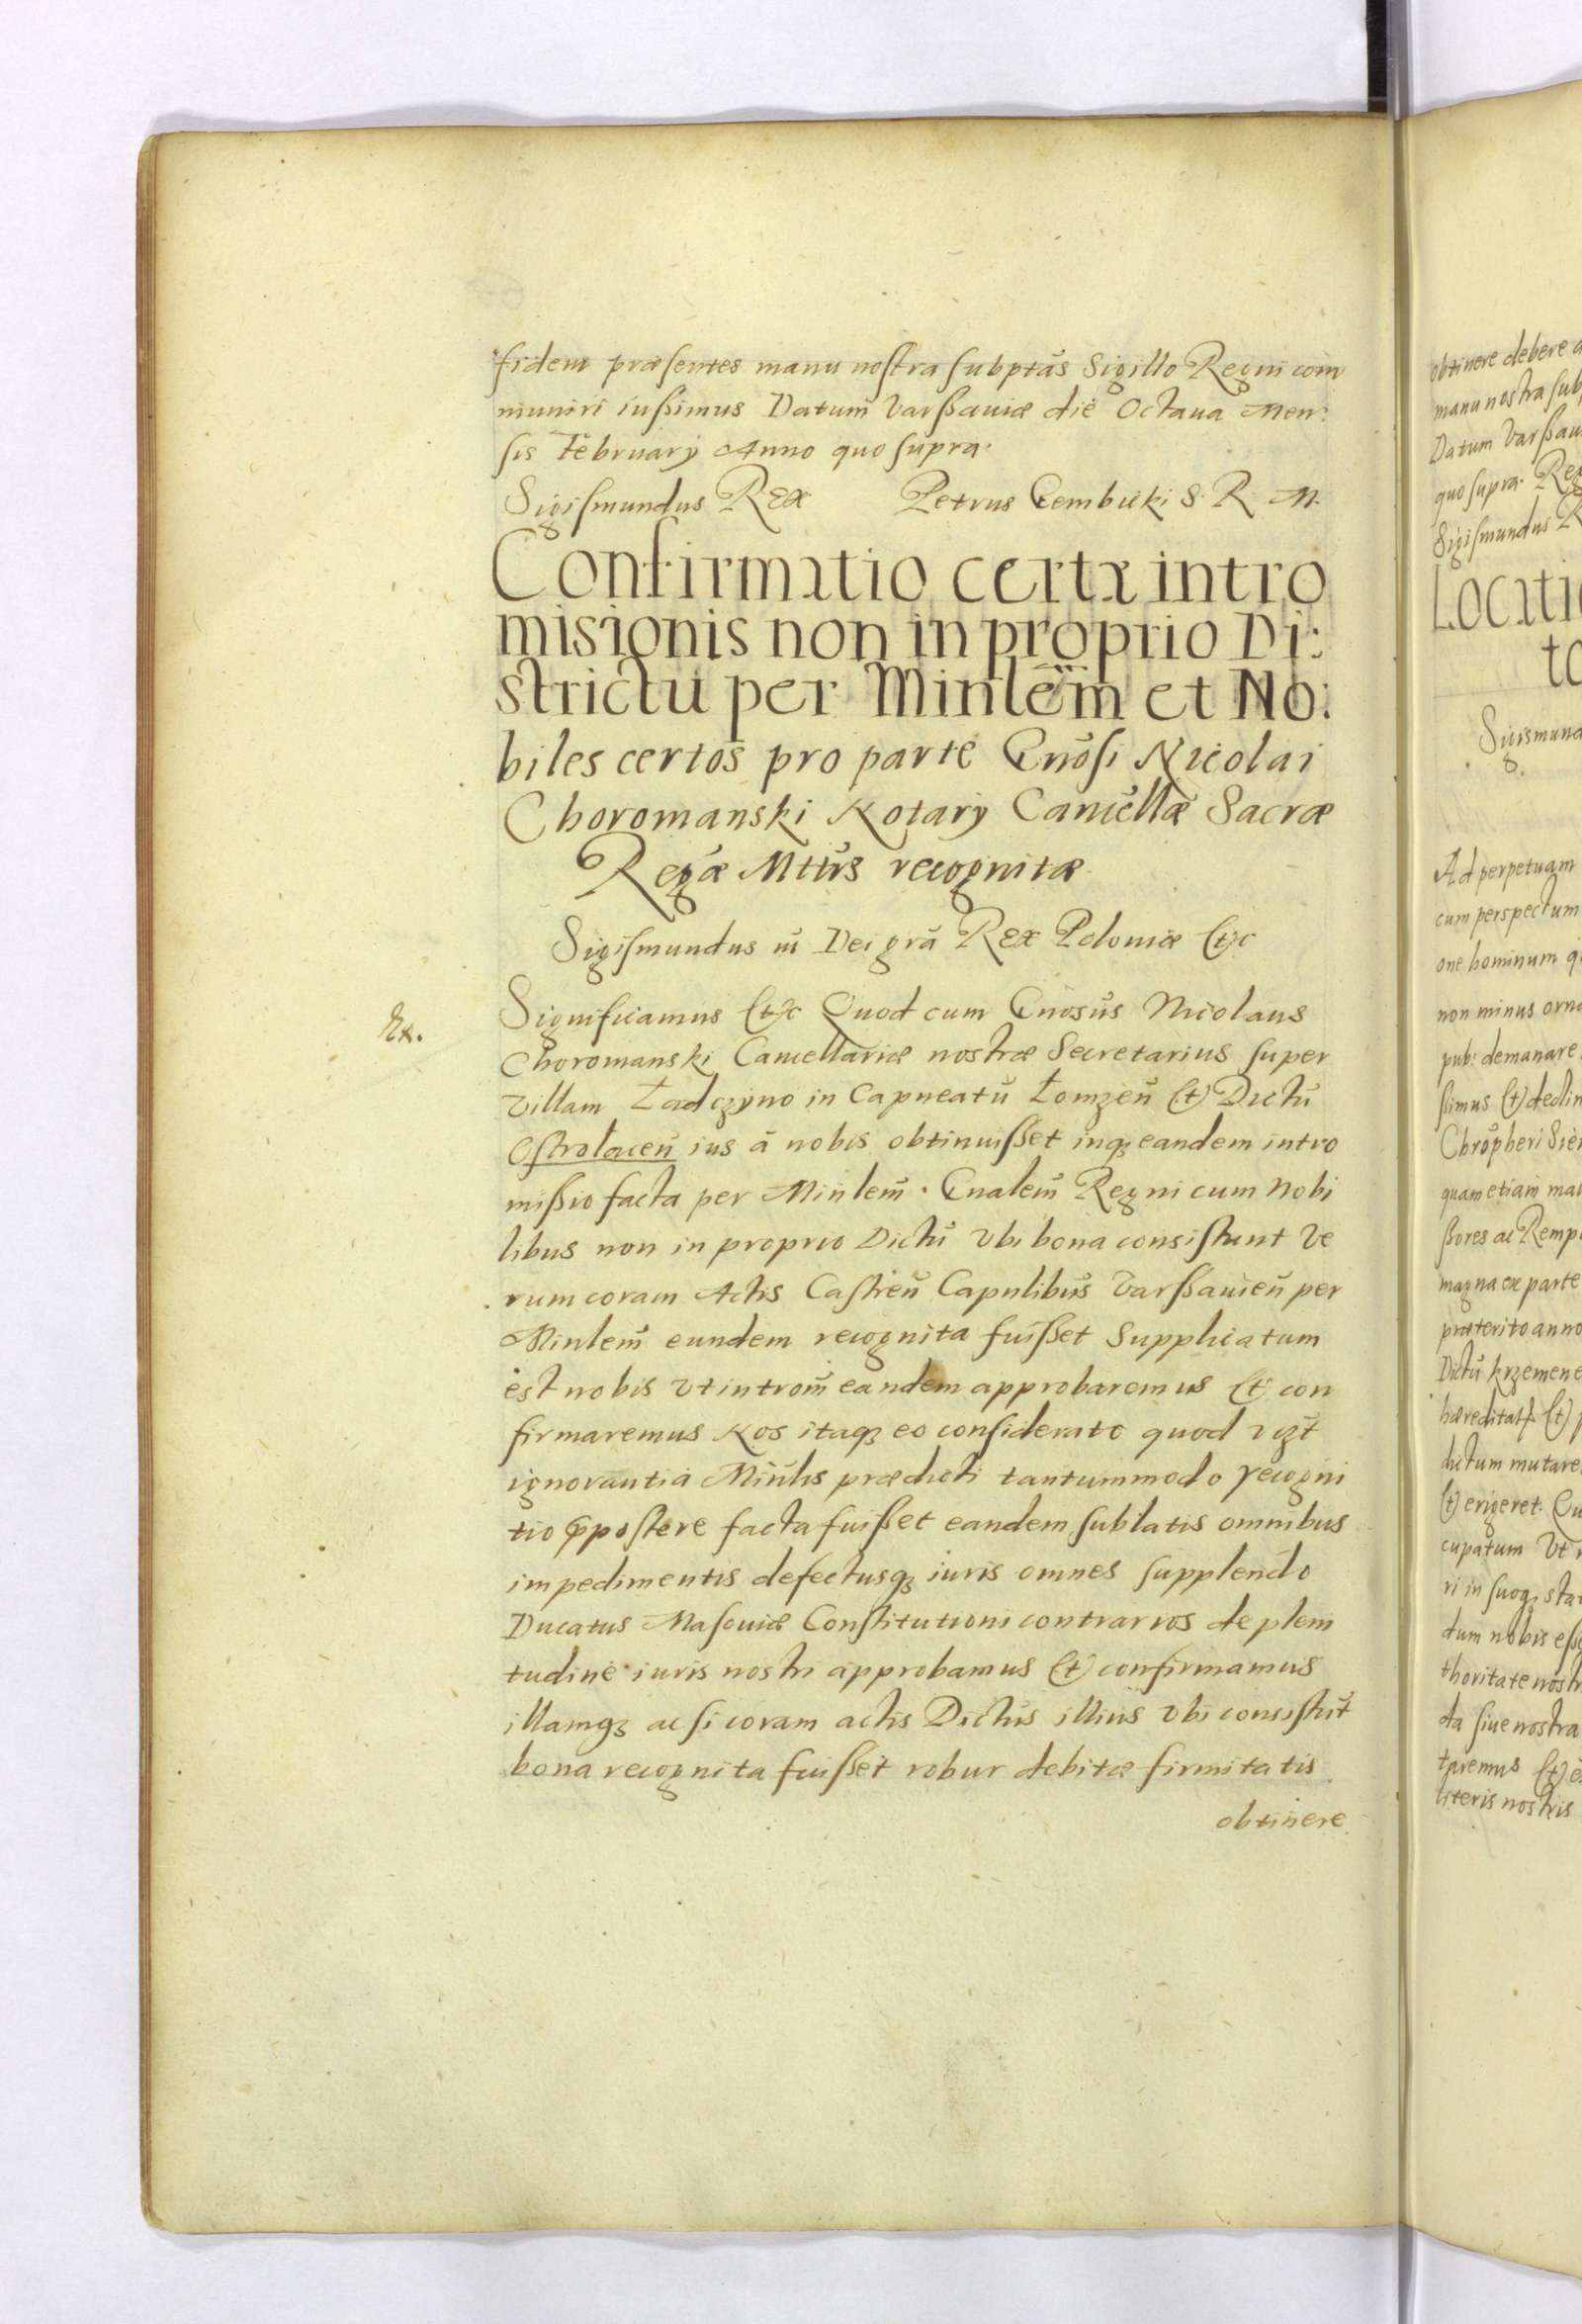 fidem præsentes manu nostra subptãs Sigillo Regni com
muniri iussimus Datum Varssaviæ die Octaua Men:
sis February Anno quo supra.
Sigismundus Rex Petrus Gembicki S. R. M.
Confirmatio certæ intro
misionis non in proprio Di:
strictu per Minlem̃ et No:
biles certos pro parte Gnosi Nicolai
Choromanski Notary Cancellæ Sacræ
Regæ Mttis recognitæ
Sigismundus iii Dei grã Rex Poloniæ Etc
Rx.
Significamus Etc Quod cum Gnosus Nicolaus
Choromanski Cancellariæ nostræ Secretarius super
Villam Ładczyno in Capneatũ Łomzeñ Et Dictũ
Ostrołeceñ ius à nobis obtinuisset inqz eandem intro
missio facta per Minlem̃. Gnalem̃ Regni cum Nobi
libus non in proprio Dictũ Vbi bona consistunt Ve
rum coram Actis Castreñ Capnlibus Varssavieñ per
Minlem̃ eundem recognita fuisset Supplicatum
est nobis vt introm̃ eandem approbaremus Et con
firmaremus Nos itaqz eo considerato quod
ignorantia Minlis prædicti tantummodo recogni
tio præpostere facta fuisset eandem sublatis omnibus
impedimentis defectusqz iuris omnes supplendo
Ducatus Masouiæ Constitutioni contrarios de pleni
tudine iuris nostri approbamus Et confirmamus
illamqz ac si coram actis Dictus illius Vbi consistũt
bona recognita fuisset robur debitæ firmitatis
obtinere
obtinere debere
manu nostra sub
Datum Varssau
quo supra. Reg
Sigismundus R
Locatio
to
Sigismund
Ad perpetuam
cum perspectum
one hominum
non minus orna
pub: demanare
ssimus Et declin
Chropheri Sie
quam etiam ma
ssores ac Remp
magna ex parte
præterito anno
Dictũ krzemene
hæreditat Et
dictum mutare
Et erigeret. Qu
cupatum Vt
ri in suoqz sta
dum nobis esse
thoritate nostr
da siue nostra
taremus Et
literis nostris